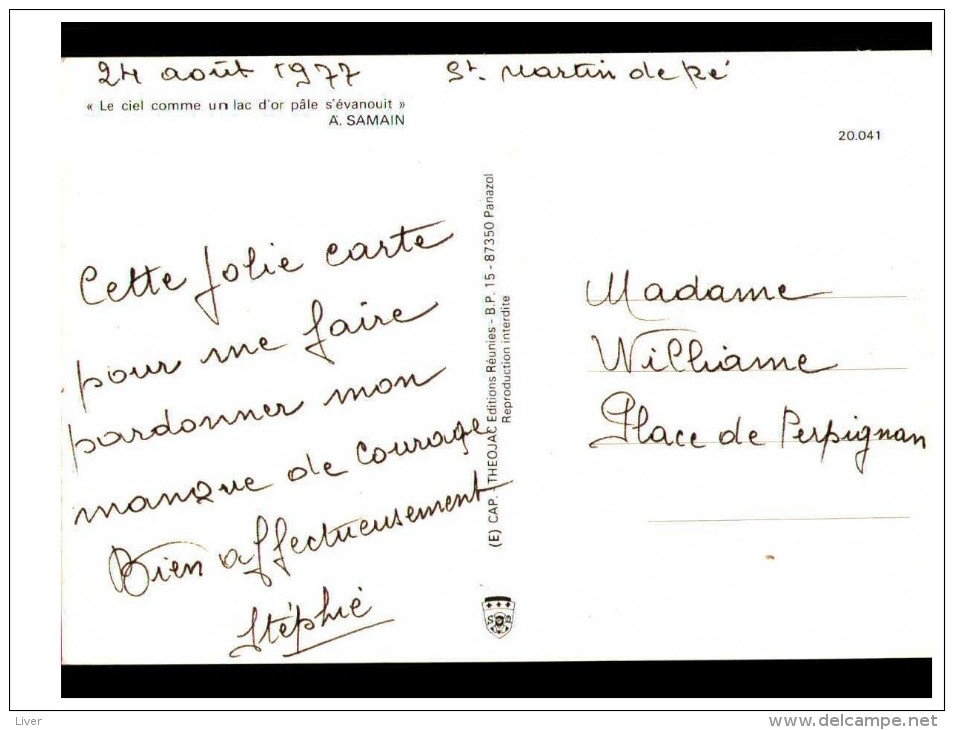 24 août 1977 St. Martin de Ré
« Le ciel comme un lac d'or pâle s'évanouit »
A. SAMAIN
20.041
Cette jolie carte
pour me faire
pardonner mon
manque de courage
Bien affectueusement
Stéphie
(E) CAP. - THEOJAC Editions Réunies - B.P. 15 - 87350 Panazol
Reproduction interdite
Madame
Williame
Place de Perpignan
Liver
www.delcampe.net